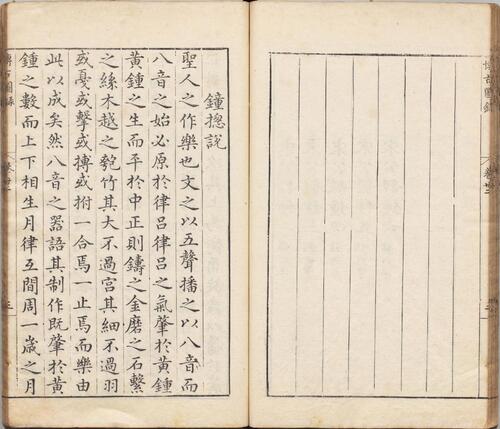 博古圖錄
卷廿二
鐘總說
聖人之作樂也文之以五聲播之以八音而
八音之始必原於律呂律呂之氣肇於黃鍾
黃鍾之生而平於中正則鑄之金磨之石繫
之絲木越之匏竹其大不過宮其細不過羽
或戞或擊或搏或拊一合焉一止焉而樂由
此以成矣然八音之器語其制作既肇於黃
鍾之數而上下相生月律互間周一歲之月
博古圖錄
三